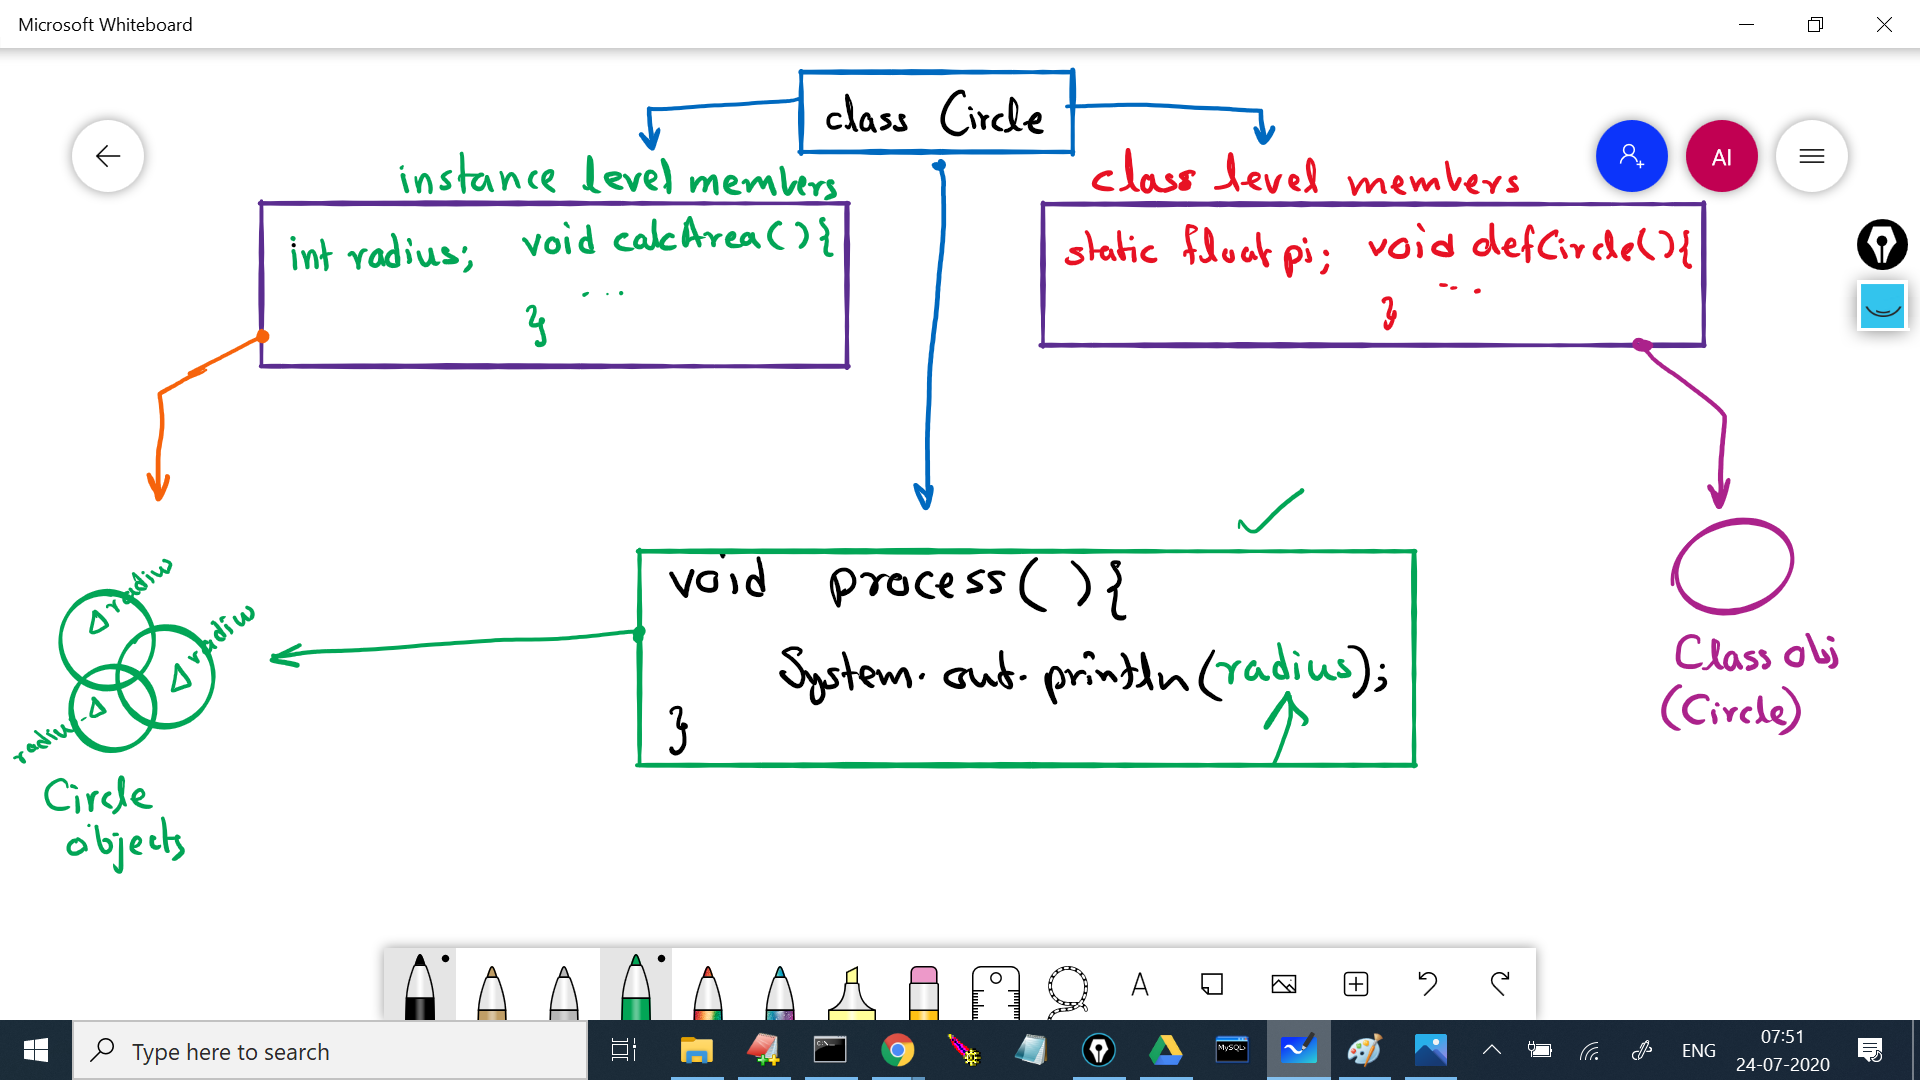 Microsoft Whiteboard
class Circle
AI
instance level members
class level members
int radius;
void calcArea(){
...
}
static float pi;
void defCircle(){
...
}
void process(){
System.out.println(radius);
}
radius
radius
radius
Circle
objects
Class obj
(Circle)
A
Type here to search
MySQL
ENG
07:51
24-07-2020